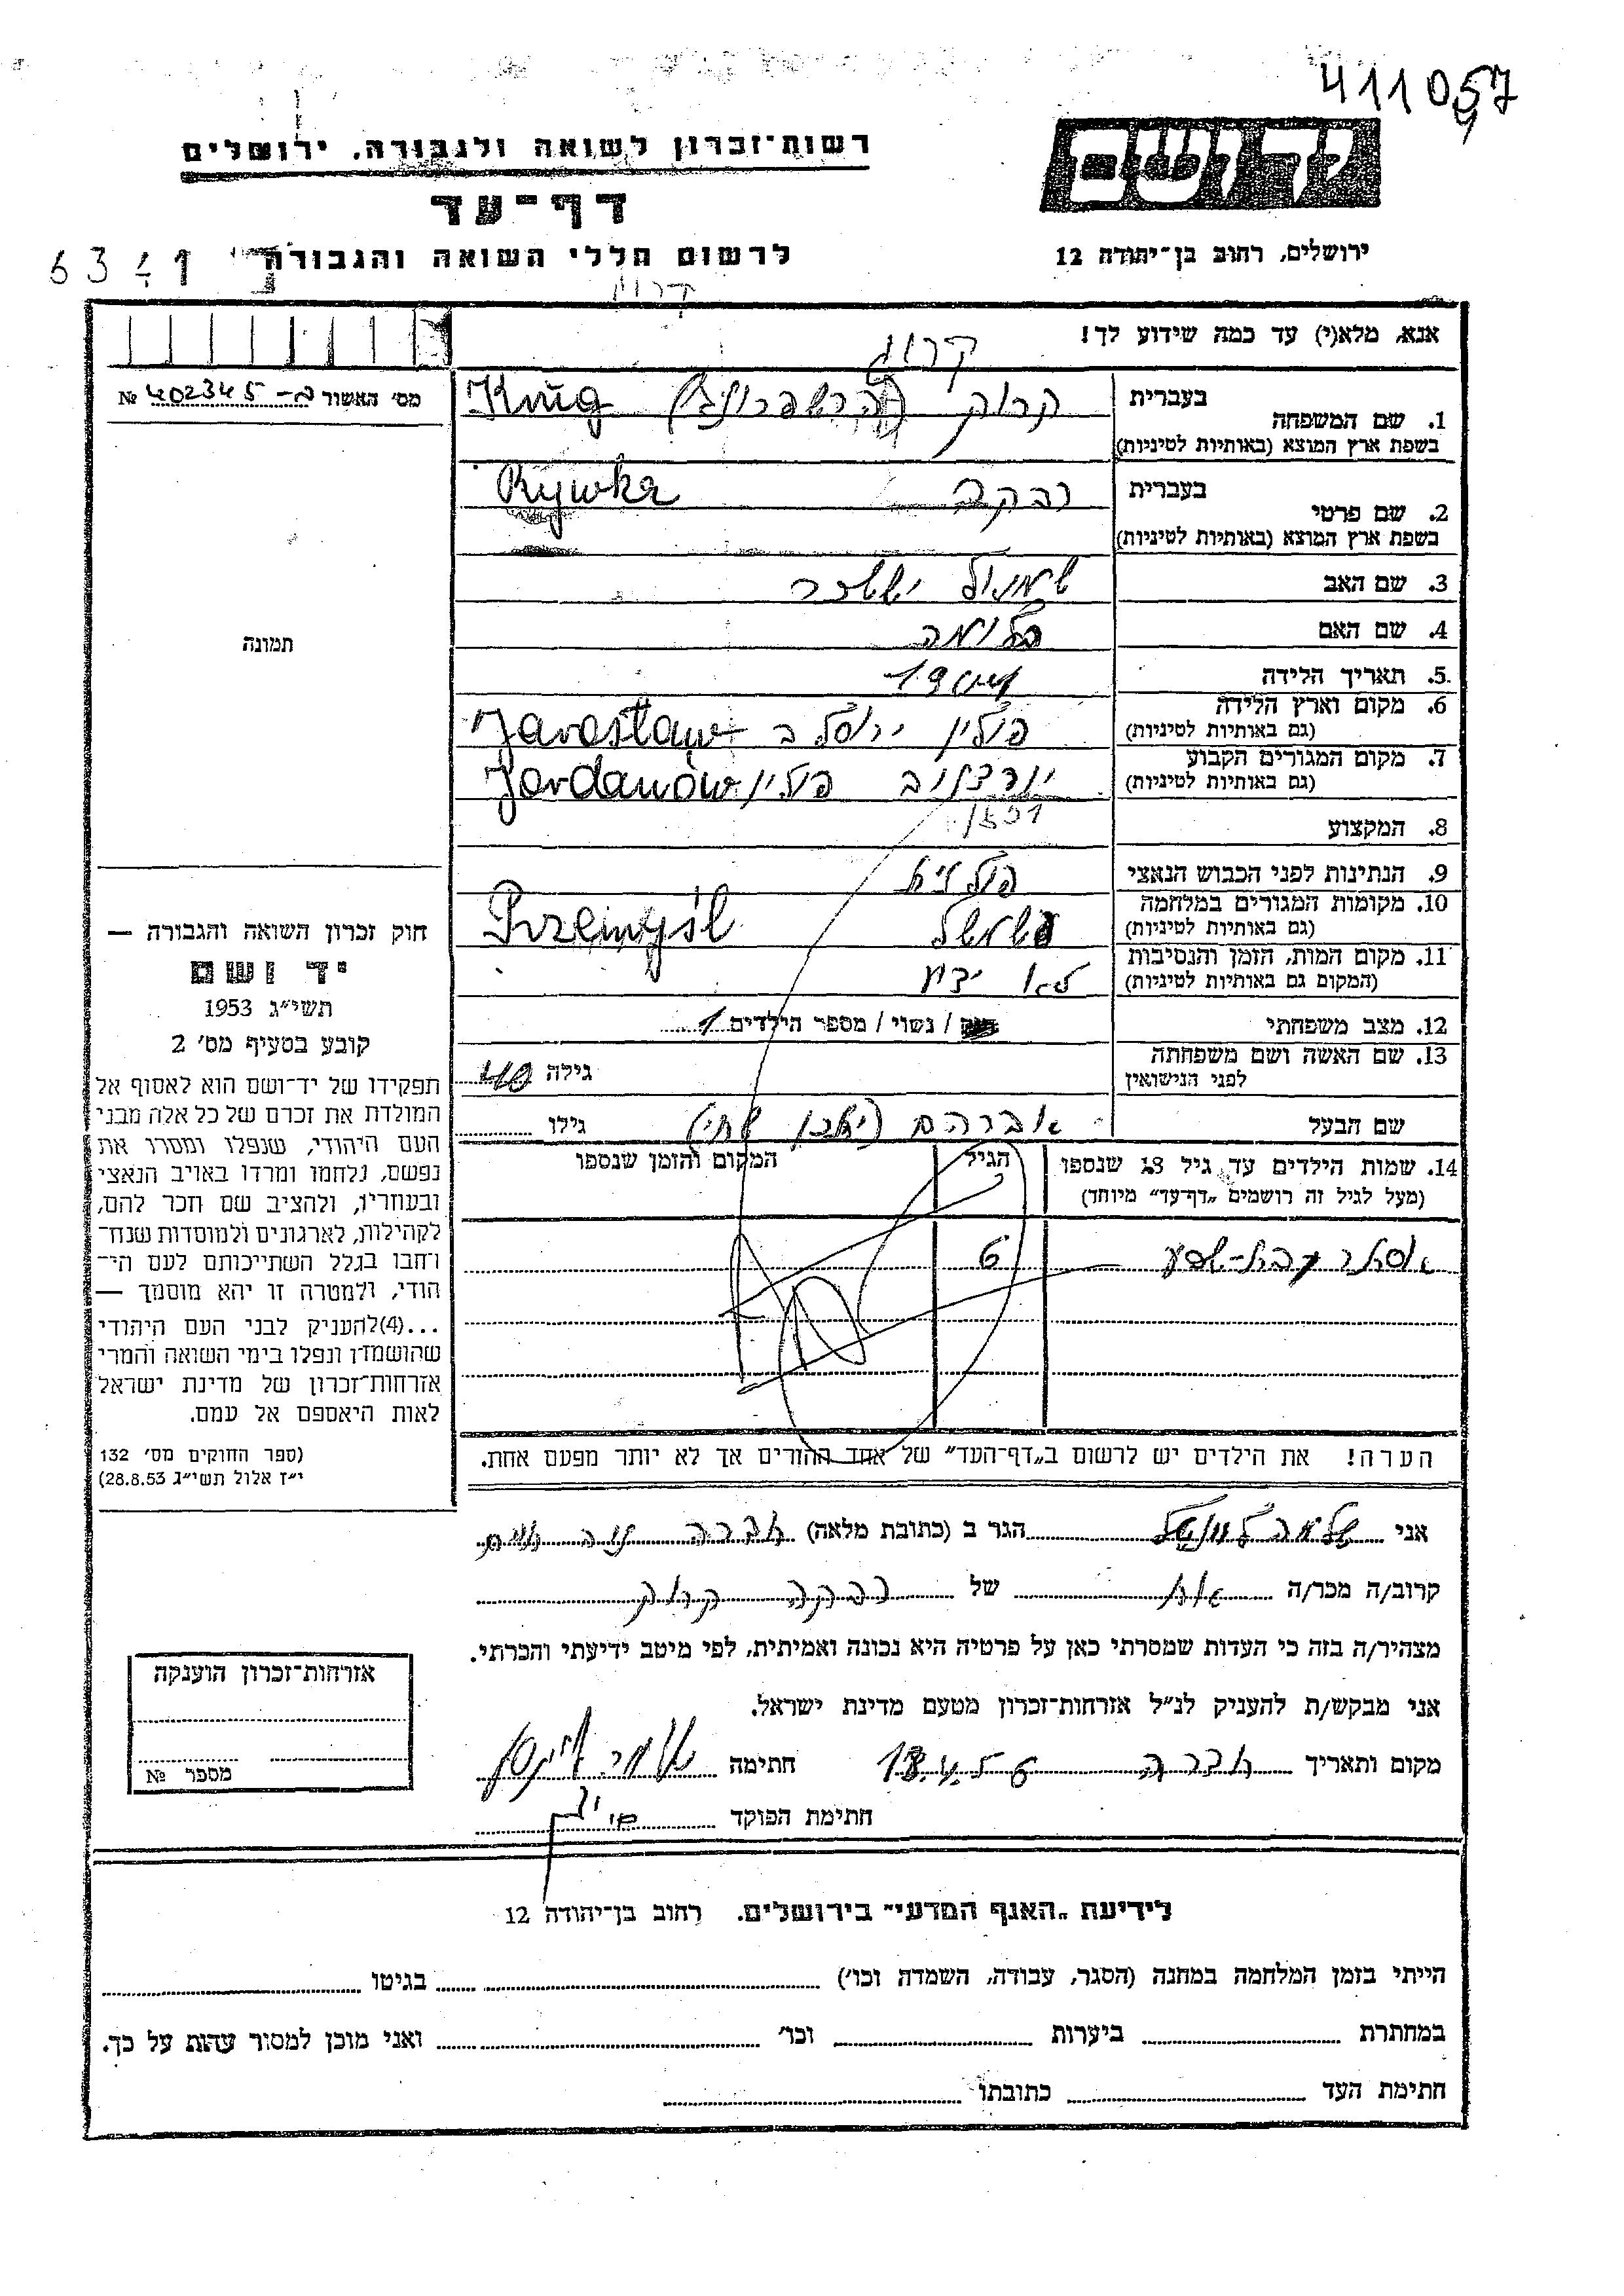 411057
יד ושם
רשות־זכרון לשואה ולגבורה, ירושלים
דף־עד
לרשום חללי השואה והגבורה
ירושלים, רחוב בן־יהודה 12
אנא, מלא(י) עד כמה שידוע לך!
קרוג
מס' האשור №
402345
1. שם המשפחה
בעברית קרוק Krug
בשפת ארץ המוצא (באותיות לטיניות)
2. שם פרטי
בעברית רבקה Rywka
בשפת ארץ המוצא (באותיות לטיניות)
3. שם האב שמואל יששכר
4. שם האם בלומה
5. תאריך הלידה
6. מקום וארץ הלידה פולין ירוסלב Jarosław
(גם באותיות לטיניות)
7. מקום המגורים הקבוע יורדנוב פולין Jordanów
(גם באותיות לטיניות)
8. המקצוע
9. הנתינות לפני הכבוש הנאצי פולנית
10. מקומות המגורים במלחמה Przemyśl
(גם באותיות לטיניות)
11. מקום המות, הזמן והנסיבות לא ידוע
(המקום גם באותיות לטיניות)
12. מצב משפחתי / נשוי / מספר הילדים 1
13. שם האשה ושם משפחתה
לפני הנישואין גילה 40
שם הבעל אברהם גילו
14. שמות הילדים עד גיל 18 שנספו
(מעל לגיל זה רושמים „דף־עד” מיוחד)
הגיל
המקום והזמן שנספו
אסתר בת־שבע 6
הערה! את הילדים יש לרשום ב„דף־העד” של אחד ההורים אך לא יותר מפעם אחת.
תמונה
חוק זכרון השואה והגבורה —
יד ושם
תשי״ג 1953
קובע בסעיף מס' 2
תפקידו של יד־ושם הוא לאסוף אל
המולדת את זכרם של כל אלה מבני
העם היהודי, שנפלו ומסרו את
נפשם, נלחמו ומרדו באויב הנאצי
ובעוזריו, ולהציב שם וזכר להם,
לקהילות, לארגונים ולמוסדות שנח־
רבו בגלל השתייכותם לעם הי־
הודי, ולמטרה זו יהא מוסמך —
...(4) להעניק לבני העם היהודי
שהושמדו ונפלו בימי השואה והמרי
אזרחות־זכרון של מדינת ישראל
לאות היאספם אל עמם.
(ספר החוקים מס' 132
י״ז אלול תשי״ג 28.8.53)
אני הגר ב (כתובת מלאה)
קרוב/ה מכר/ה אח של רבקה קרוק
מצהיר/ה בזה כי העדות שמסרתי כאן על פרטיה היא נכונה ואמיתית, לפי מיטב ידיעתי והכרתי.
אני מבקש/ת להעניק לנ״ל אזרחות־זכרון מטעם מדינת ישראל.
מקום ותאריך חתימה
חתימת הפוקד
אזרחות־זכרון הוענקה
מספר №
לידיעת „האגף המדעי” בירושלים, רחוב בן־יהודה 12
הייתי בזמן המלחמה במחנה (הסגר, עבודה, השמדה וכו') בגיטו
במחתרת ביערות וכו' ואני מוכן למסור עדות על כך.
חתימת העד כתובתו